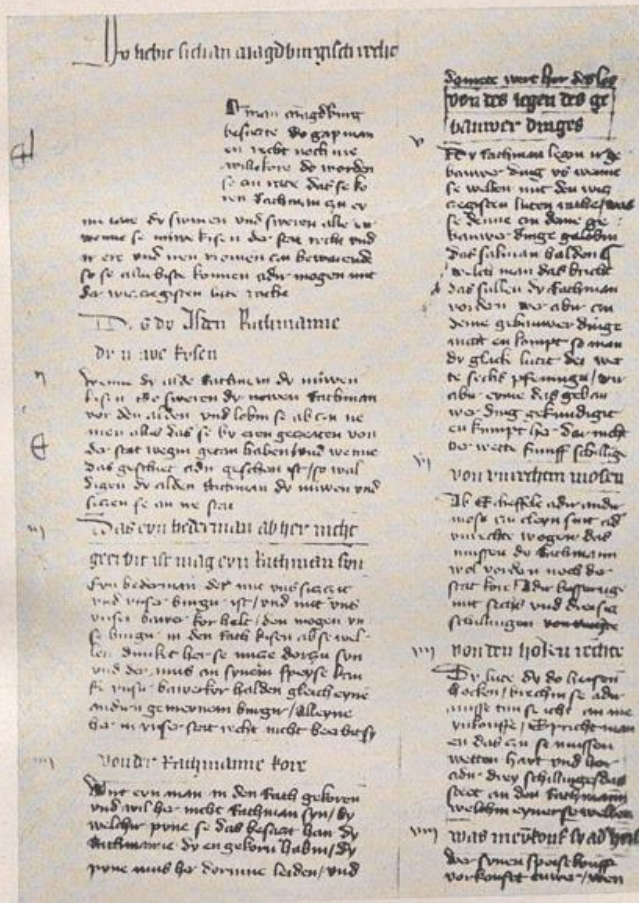 Hy hebit sich an magdburgisch recht
man magdburg
besatte do gap man
en recht noch ire
willekore do worden
se an rate das se ko
ren Rathman czu ey
me iare dy swuren und sweren alle iar
wenne se nuwe kisen der stat recht und
ir ere und iren vromen czu bewarend
so se allir beste konnen adir mogen mit
der wiczegisten lute rate
dy alden Rathmanne
dy nuwe kysen
Wenne dy alde Rathman dy nuwen
kisen so sweren dy nuwen Rathman
vor den alden und lobin
men alles das se by eren geczeiten von
der stat wegin getan haben und wenne
das geschiet adir geschen ist / so wal
digen dy alden Rathman dy nuwen und
seczen se an ire stat
Das eyn bederman ab her nicht
geerbit ist mag eyn Rathman syn
Eyn bederman der mit uns siczczit
und unser burger ist / und mit uns
unser bawer kor helt / den mogen un
se burger in den Rath kisen ab se wel
len dunkit her se nucze dorczu syn
und der mus an synem speyse kou
fe unsir bawerkor halden gleich eyme
andirn gemeynem burger / alleyne
her in unser stat recht nicht beerbit sy
von der Rathmanne kore
Wirt eyn man in den Rath gekoren
und wil her nicht Rathman syn / by
welchir pyne se das besaczt han dy
Rathmanne dy en gekorn habin / dy
pyne mus her dorumme leiden / und
von des legen des ge
bauwer dinges
v
Dy Rathman legen ir ge
bauwer ding us wenne
se wellen mit der wicz
czegisten luten rathe / was
se denne czu deme ge
bauwer dinge gelobin
das sal man halden
welch man das bricht
das sullen dy Rathman
vordern wer abir czu
deme gebauwer dinge
nicht en kompt so man
dy glocke lutit der wet
te sechs pfennynge / wirt
abir eyme das gebau
wer ding gekundigit
en kumpt her dar nicht
der wette funff schillige
vi
von unrechtem mosen
Ab Scheffele adir andir
mose czu cleyn sint adir
unrechte wogen das
mussen dy Rathmann
wol vordern noch der
stat kore / Adir
mit sechs und dreisig
schillingen
vij
von den hoken rechte
Dy lute dy do heisen
hocken / brechin se adir
missetun se icht an irme
unkouffe / Spricht man
en das czu se mussen
wetten hart und hor
adir drey schillinge das
stet an den Rathmann
welchim eyner se wellen
viij
was meynkouf
der synen speisekouff
vorkouffet turer / wen